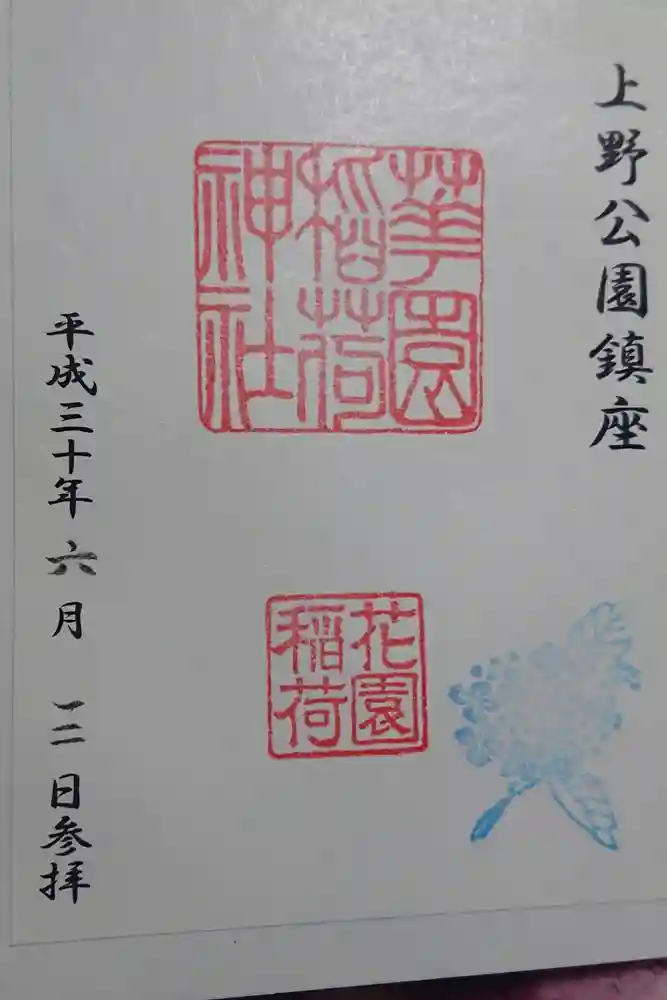 上野公園鎮座
華園
稲荷
神社
花園
稲荷
平成三十年六月三日参拝